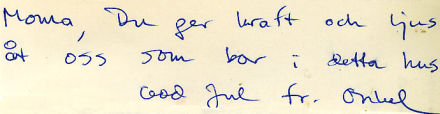 Moma, Du ger kraft och ljus
åt oss som bor i detta hus
God Jul fr. Onkel